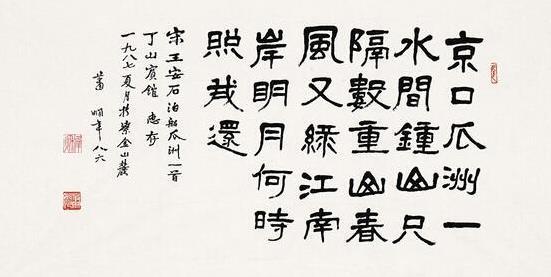 京口瓜洲一
水間鍾山只
隔數重山春
風又緑江南
岸明月何時
照我還
宋王安石泊船瓜洲一首
丁山賓館 惠存
一九八七夏月於紫金山麓
蕭嫻年八六